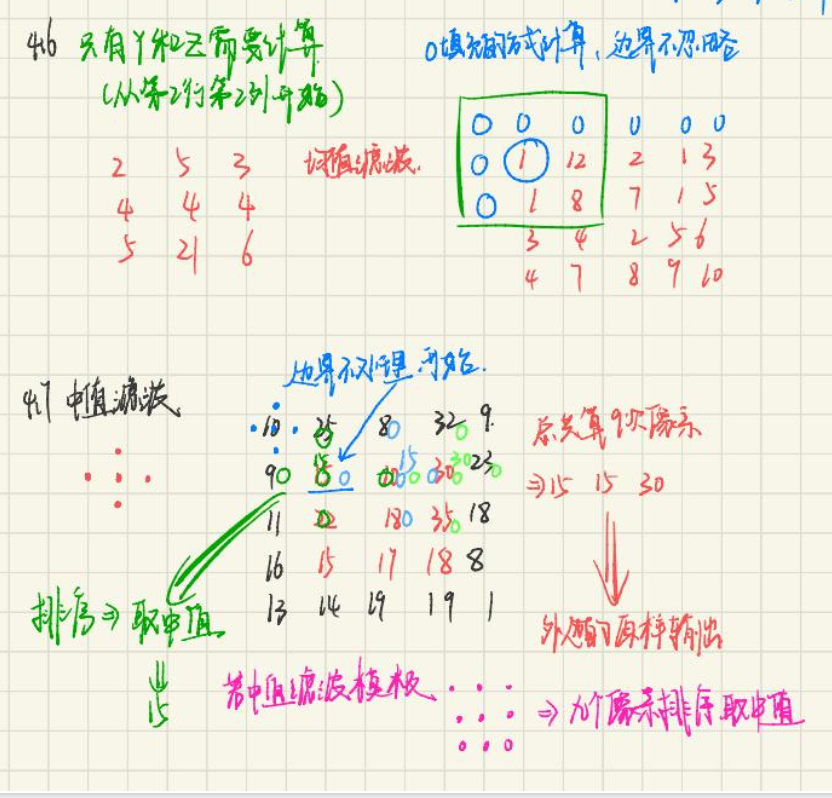 4.6 只有Y和Z需要计算
(从第2行第2列开始)
0填充的方式计算，边界不忽略
2 5 3
4 4 4
5 21 6
均值滤波.
0 0 0 0 0 0
0 1 12 2 1 3
0 1 8 7 1 5
3 4 2 5 6
4 7 8 9 10
4.7 中值滤波
边界不处理 开始.
10 25 80 32 9
9 15 30 23
11 22 18 35 18
16 15 17 18 8
13 14 19 19 1
总共算9次像素
⇒15 15 30
外围的原样输出
排序⇒取中值
15
若中值滤波模板
⇒九个像素排序取中值